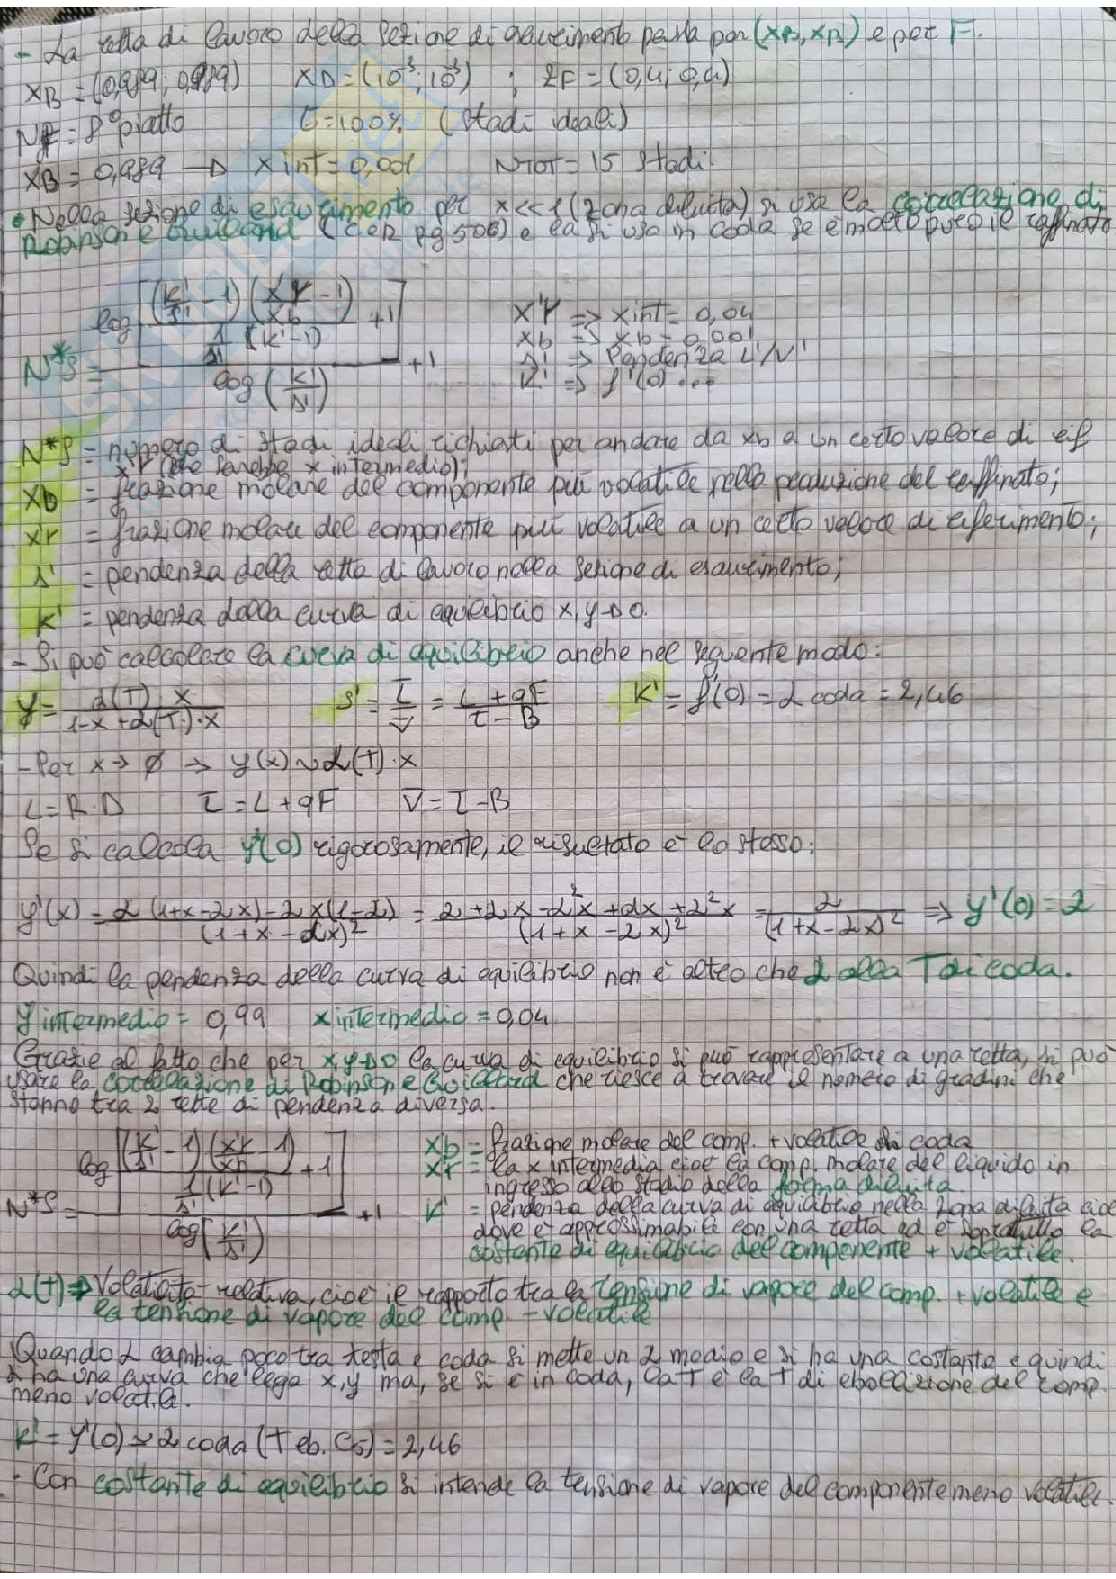 - La retta di lavoro della sezione di esaurimento passa por (xB, xB) e per F.
xB = (0,989; 0,989) xD = (10⁻³; 10⁻³) ; zF = (0,4; 0,4)
NF = 8° piatto = 100% (stadi ideali)
xB = 0,989 → x int = 0,001 NTOT = 15 stadi
• Nella sezione di esaurimento per x<<1 (zona diluita) si usa la correlazione di
Robinson e Guilliland ( pg 506) e la si usa in coda se è molto puro il raffinato
N*s = log[(K'/s' - 1)(xr/xb - 1) / (1/s' (K'-1)) + 1] / log(K'/s') + 1
x'r => x int = 0,04
xb => xb = 0,001
s' => Pendenza L'/V'
K' => f'(0) ...
N*s = numero di stadi ideali richiesti per andare da xb a un certo valore di rif
xr (che sarebbe x intermedio);
xb = frazione molare del componente più volatile nella produzione del raffinato;
xr = frazione molare del componente più volatile a un certo valore di riferimento;
s' = pendenza della retta di lavoro nella sezione di esaurimento;
K' = pendenza della curva di equilibrio x,y→0.
- Si può calcolare la curva di equilibrio anche nel seguente modo:
y = α(T)·x / (1-x+α(T)·x) s' = L̅/V̅ = (L+qF)/(L̅-B) K' = f'(0) = α coda = 2,46
- Per x → 0 → y(x) ~ α(T)·x
L = R·D L̅ = L+qF V̅ = L̅-B
Se si calcola y'(0) rigorosamente, il risultato è lo stesso:
y'(x) = α(1+x-αx)-αx(1-α) / (1+x-αx)² = α+αx-α²x+αx+α²x / (1+x-αx)² = α / (1+x-αx)² => y'(0) = α
Quindi la pendenza della curva di equilibrio non è altro che α alla T di coda.
y intermedio = 0,99 x intermedio = 0,04
Grazie al fatto che per x,y→0 la curva di equilibrio si può rappresentare a una retta, si può
usare la correlazione di Robinson e Guilliland che riesce a trovare il numero di gradini che
stanno tra 2 rette di pendenza diversa.
N*s = log[(K'/s' - 1)(xr/xb - 1) / (1/s' (K'-1)) + 1] / log(K'/s') + 1
xb = frazione molare del comp. + volatile di coda
xr = la x intermedia cioè la comp. molare del liquido in
ingresso allo stadio della forma diluita.
K' = pendenza della curva di equilibrio nella zona diluita cioè
dove è approssimabile con una retta ed è soprattutto la
costante di equilibrio del componente + volatile.
α(T) => Volatilità relativa, cioè il rapporto tra la tensione di vapore del comp. + volatile e
la tensione di vapore del comp. - volatile
Quando α cambia poco tra testa e coda si mette un α medio e si ha una costante e quindi
si ha una curva che lega x,y ma, se si è in coda, la T è la T di ebollizione del comp.
meno volatile.
K' = y'(0) ~ α coda (T eb. C5) = 2,46
- Con costante di equilibrio si intende la tensione di vapore del componente meno volatile.